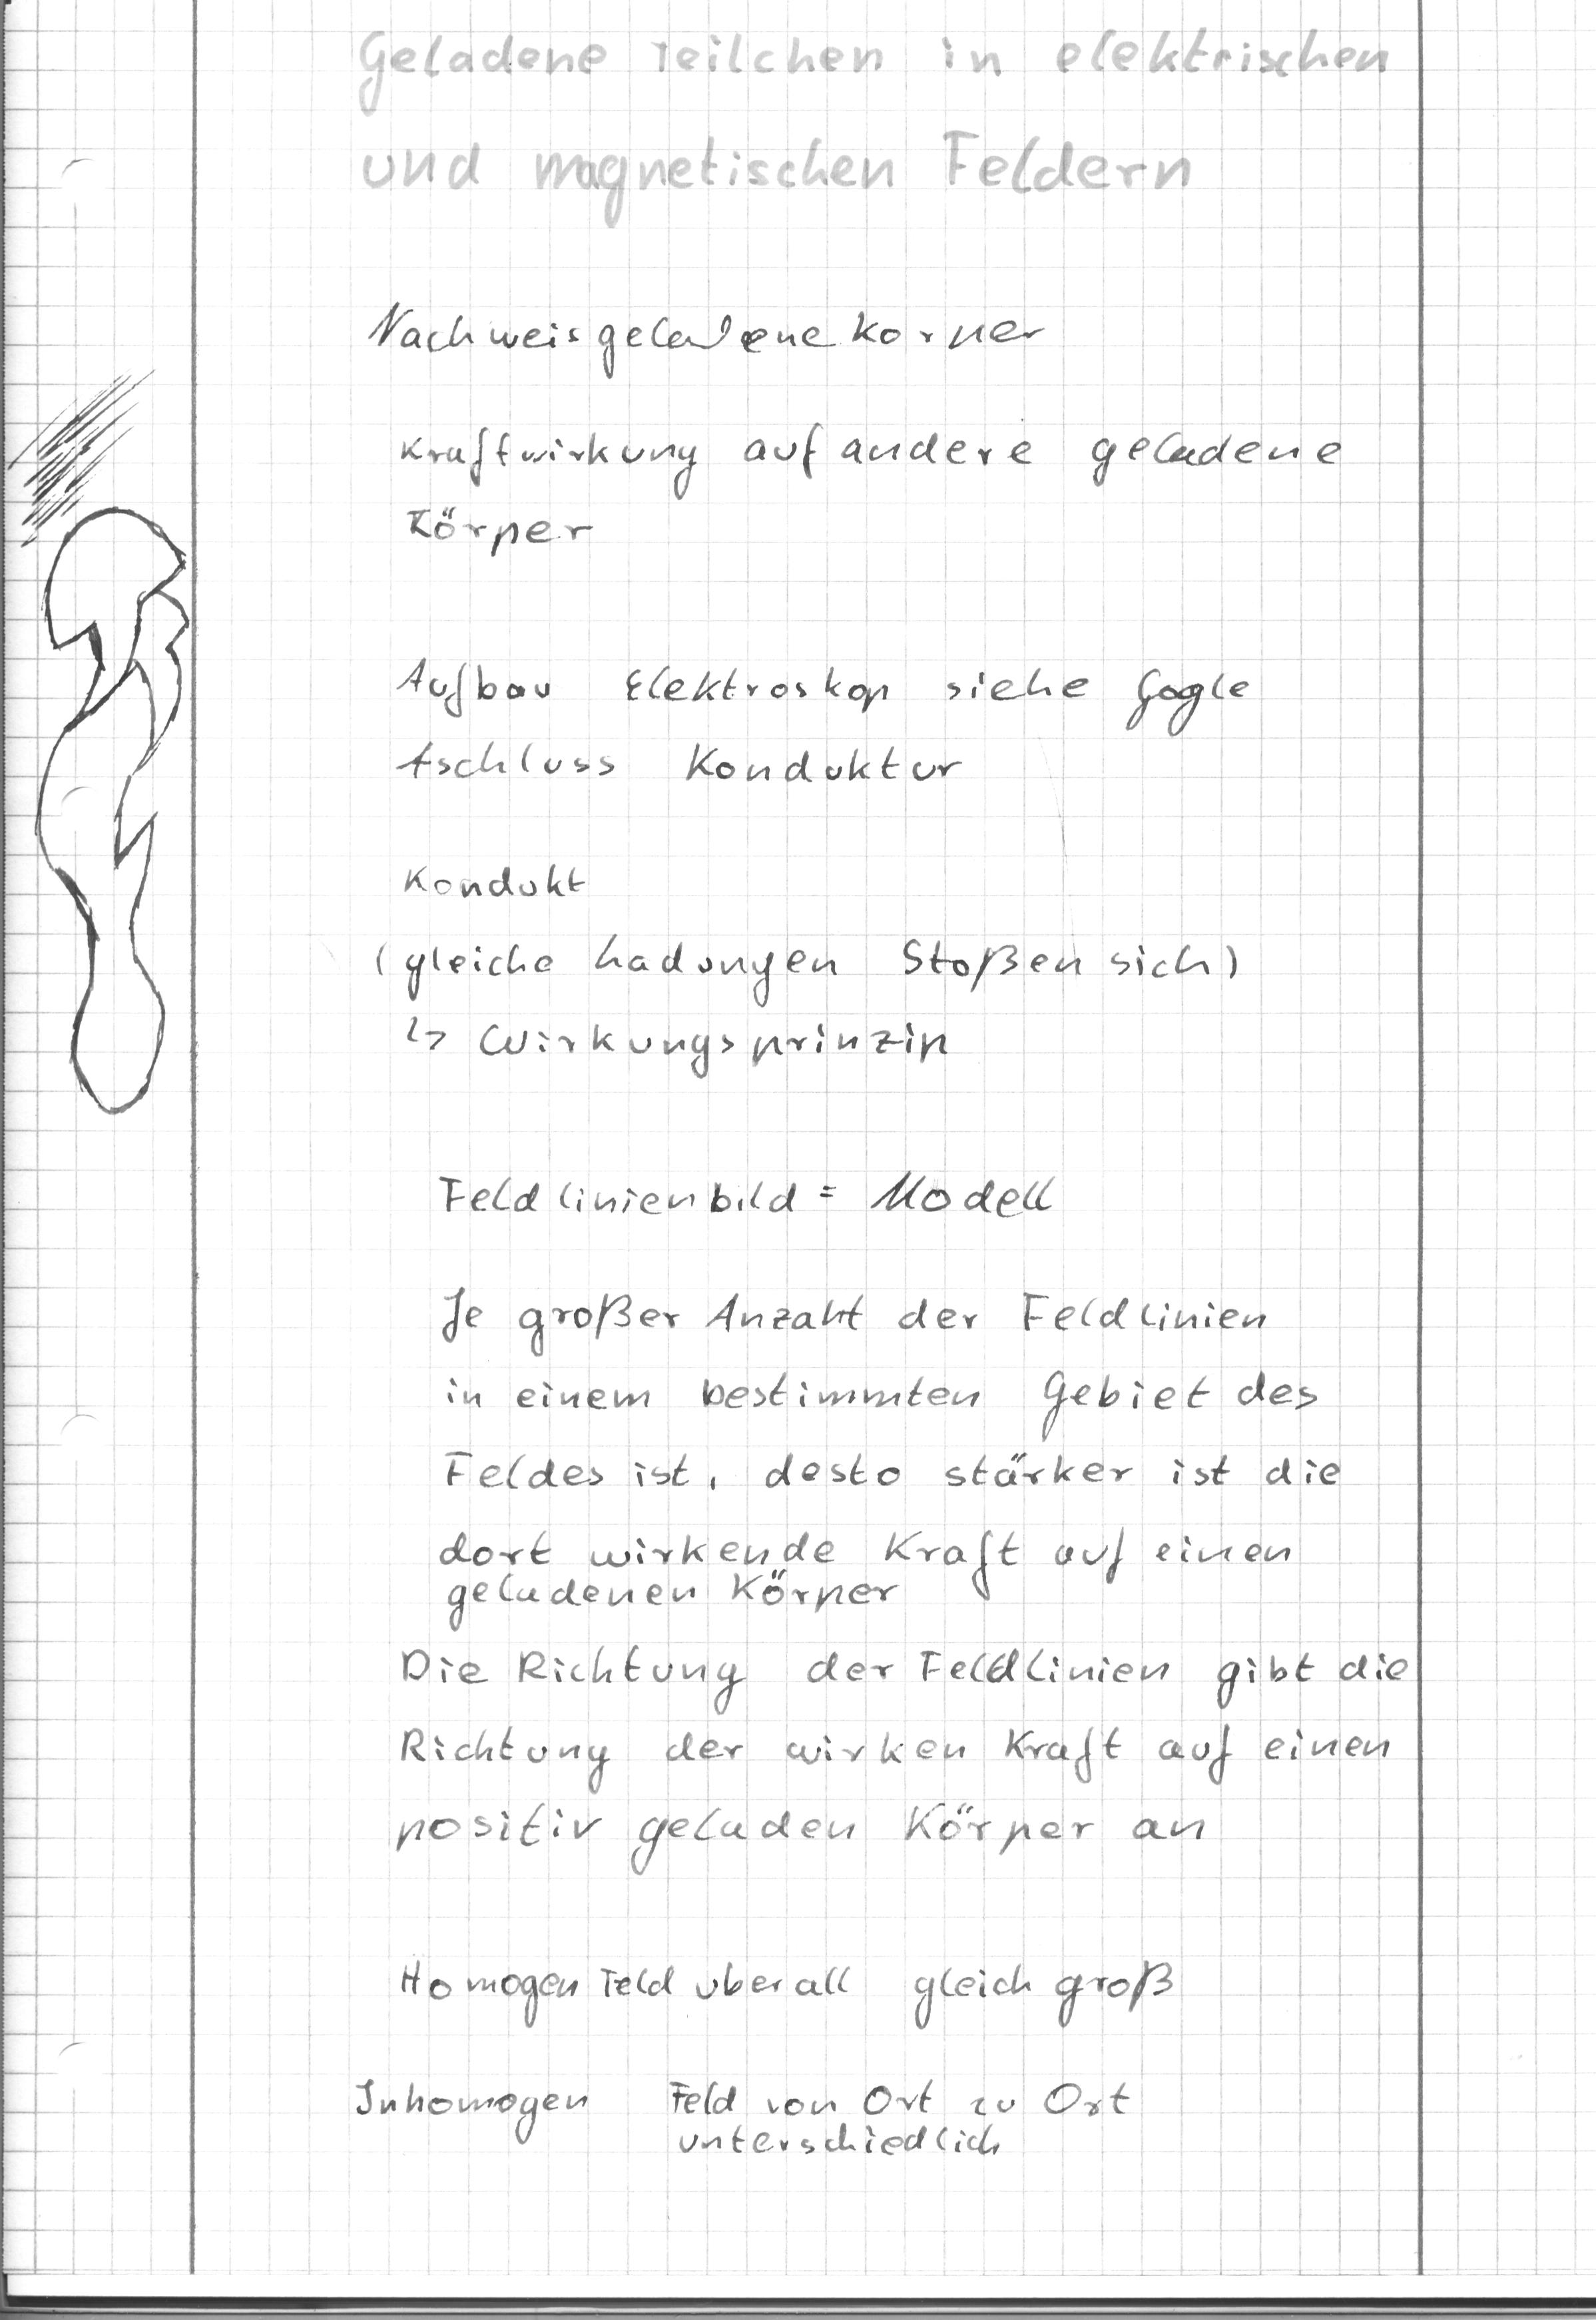 Geladene Teilchen in elektrischen
und magnetischen Feldern
Nachweis geladene Korper
Kraftwirkung auf andere geladene
Körper
Aufbau Elektroskop siehe Gogle
Aschluss Konduktur
Kondukt
(gleiche Ladungen Stoßen sich)
↳ Wirkungsprinzip
Feldlinienbild = Modell
Je großer Anzahl der Feldlinien
in einem bestimmten Gebiet des
Feldes ist, desto stärker ist die
dort wirkende Kraft auf einen
geladenen Körper
Die Richtung der Feldlinien gibt die
Richtung der wirken Kraft auf einen
positiv geladen Körper an
Homogen Feld uberall gleich groß
Inhomogen Feld von Ort zu Ort
unterschiedlich